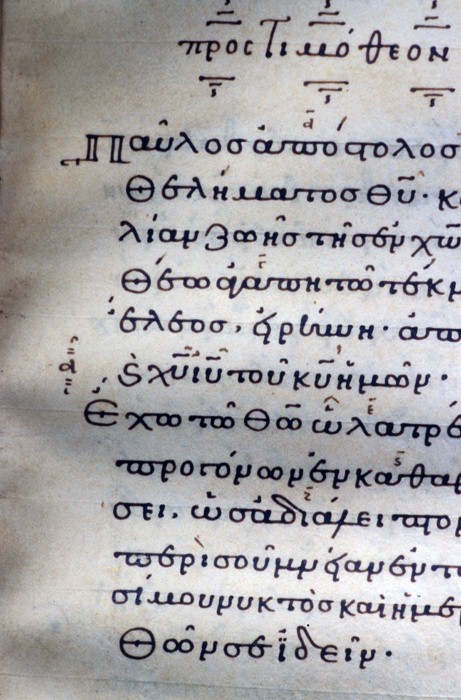 προς Τιμόθεον
Παῦλος ἀπόστολος
θελήματος θ̅υ̅· κ
λίαν ζωῆς τῆς ἐν χ̅ω̅
θέω ἀγάπητῶ τέκν
ἔλεος, εἰρήνη· ἀπο
χ̅υ̅ ι̅υ̅ τοῦ κ̅υ̅ ἡμῶν·
Ἔχω τῶ θ̅ω̅ ὧ λατρε
προγόνων ἐν καθαρ
σει. ὡς ἀδιάλειπτον
περὶ σοῦ μνείαν ἐν τ
σί μου νυκτὸς καὶ ἡμέ
θῶν σε ἰδεῖν·